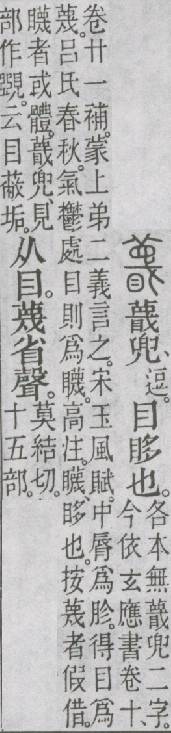 𥋚兜、逗。目眵也。各本無𥋚兜二字。
今依玄應書卷十、
卷廿一補。蒙上弟二義言之。宋玉風賦。中脣爲胗。得目爲
蔑。呂氏春秋。氣鬱處目則爲䁾。高注。䁾、眵也。按蔑者假借。
䁾者或體。𥋚兜、見
部作覴。云目蔽垢。
从目。蔑省聲。莫結切。
十五部。